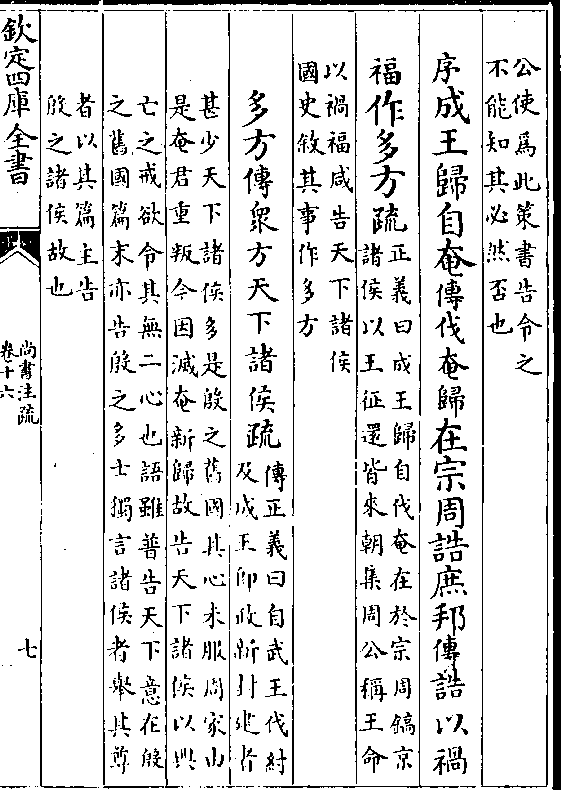 公使為此策書告令之
不能知其必然否也
序成王歸自奄傳伐奄歸在宗周誥庶邦傳誥以禍
福作多方疏正義曰成王歸自伐奄在於宗周鎬京
諸侯以王征還皆來朝集周公稱王命
以禍福咸告天下諸侯
國史敘其事作多方
多方傳衆方天下諸侯疏傳正義曰自武王伐紂
及成王即政新封建者
甚少天下諸侯多是殷之舊國其心未服周家由
是奄君重叛今因滅奄新歸故告天下諸侯以興
亡之戒欲令其無二心也語雖普告天下意在殷
之舊國篇末亦告殷之多士獨言諸侯者舉其尊
者以其篇主告
殷之諸侯故也
欽定四庫全書
尚書注疏
卷十六
七